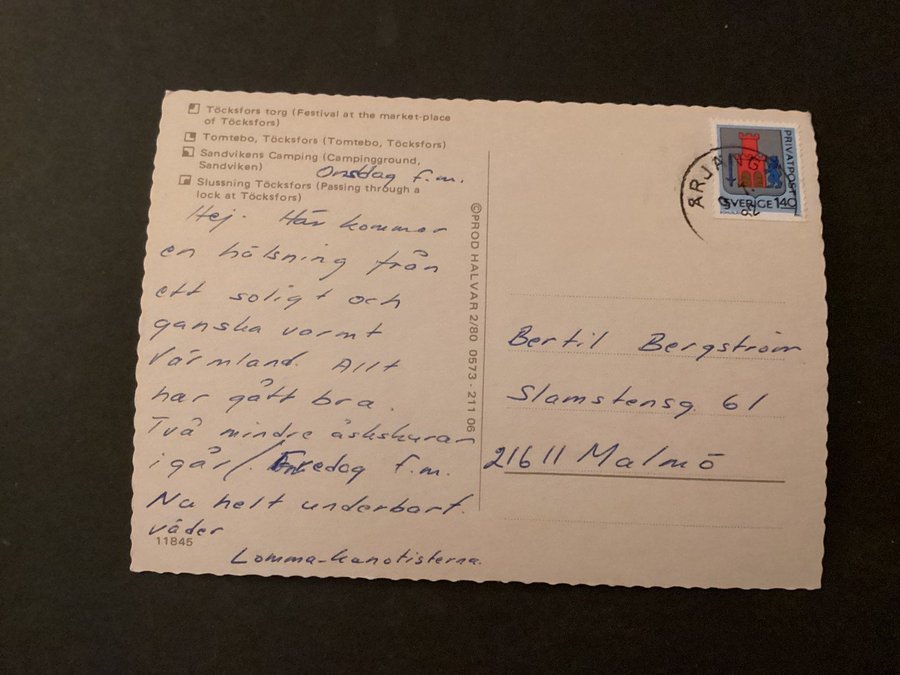 Töcksfors torg (Festival at the market-place
of Töcksfors)
Tomtebo, Töcksfors (Tomtebo, Töcksfors)
Sandvikens Camping (Campingground,
Sandviken)
Slussning Töcksfors (Passing through a
lock at Töcksfors)
Onsdag f.m.
Hej. Här kommer
en hälsning från
ett soligt och
ganska varmt
Värmland. Allt
har gått bra.
Två mindre åskskurar
igår / Fredag f.m.
Nu helt underbart
väder
Lomma-kanotisterna.
11845
©PROD HALVAR 2/80 0573-211 06
ÅRJÄNG
82
PRIVATPOST
SVERIGE 140
Bertil Bergström
Slamstensg 61
21611 Malmö